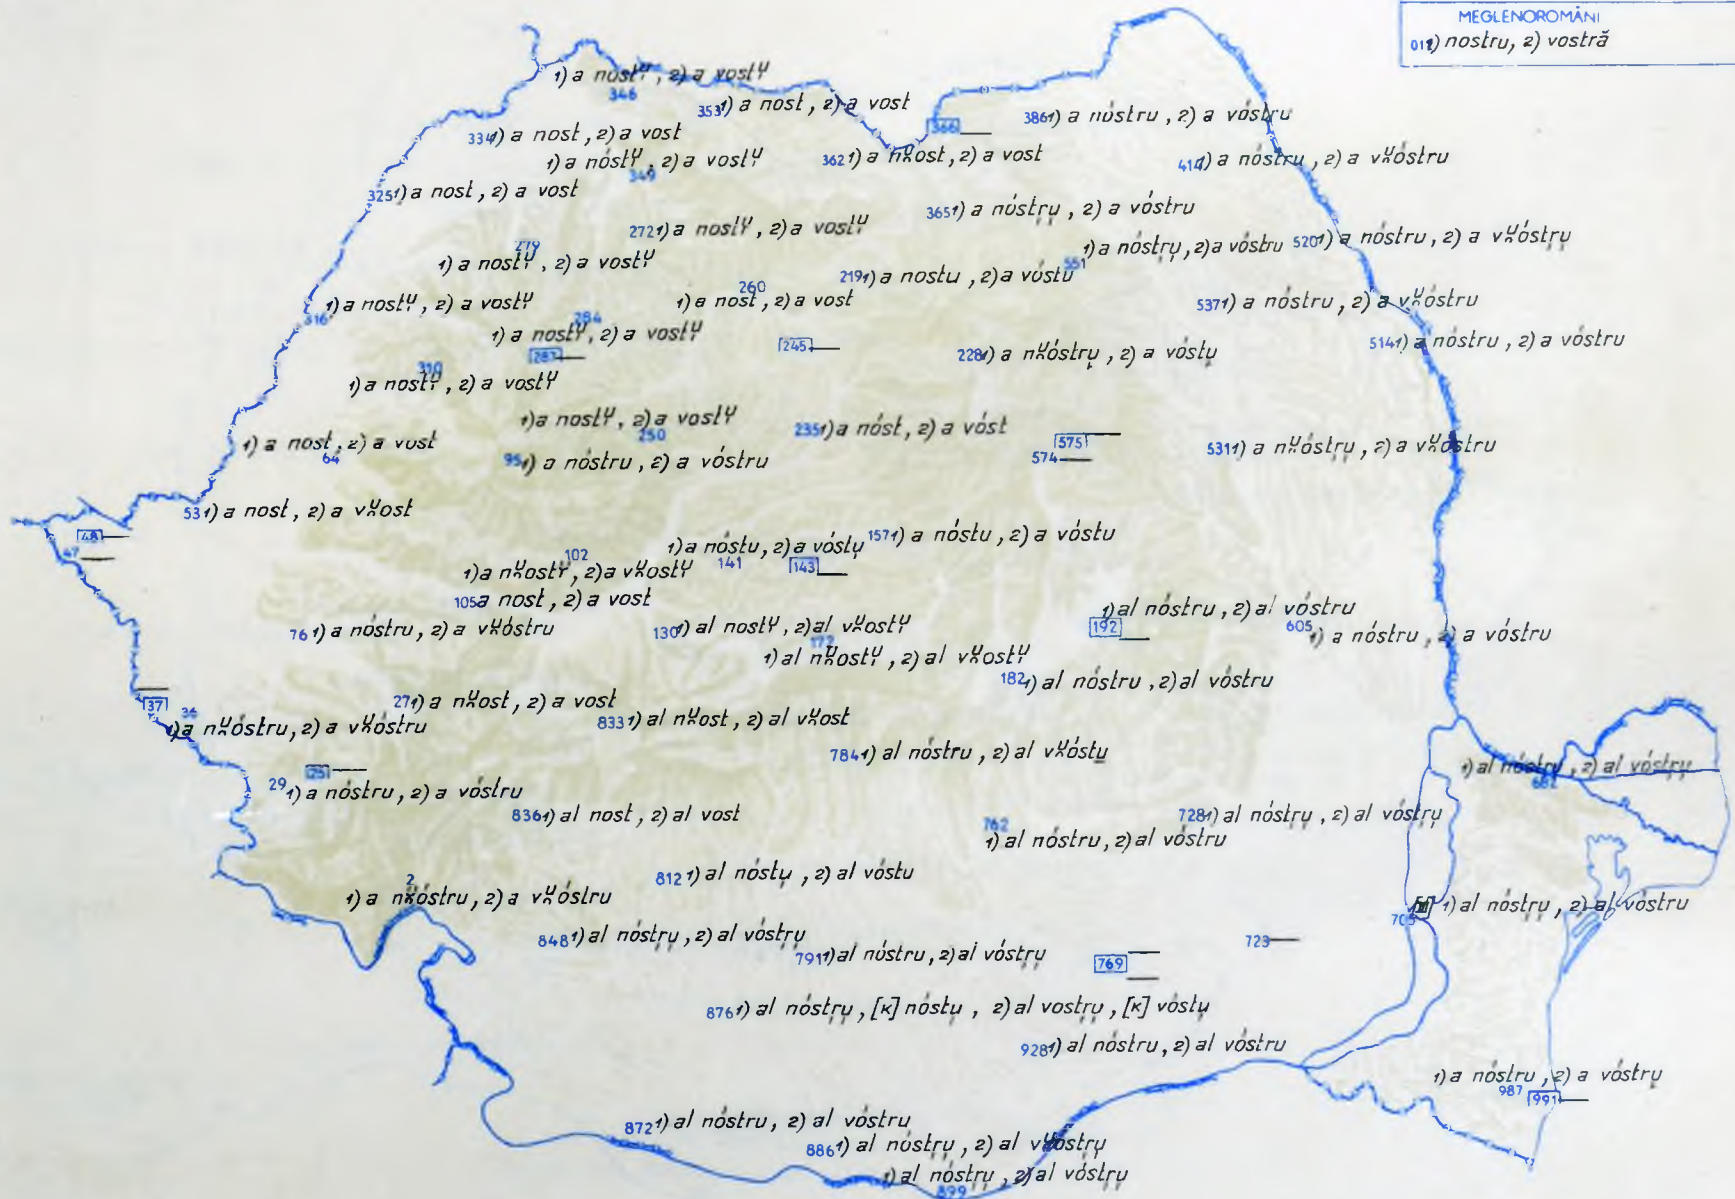 MEGLENOROMÂNI
011) nostru, 2) vostră
346 1) a nostᵘ̯, 2) a vostᵘ̯
353 1) a nost, 2) a vost
334 1) a nost, 2) a vost
366 —
386 1) a nóstru, 2) a vóstru
349 1) a nóstᵘ̯, 2) a vostᵘ̯
362 1) a nᵘ̯ost, 2) a vost
414 1) a nóstru, 2) a vᵘ̯óstru
325 1) a nost, 2) a vost
365 1) a nóstru̯, 2) a vóstru
272 1) a nostᵘ̯, 2) a vostᵘ̯
551 1) a nóstru̯, 2) a vóstru
520 1) a nóstru, 2) a vᵘ̯óstru̯
279 1) a nostᵘ̯, 2) a vostᵘ̯
219 1) a nostu, 2) a vóstu
316 1) a nostᵘ̯, 2) a vostᵘ̯
260 1) a nost, 2) a vost
537 1) a nóstru, 2) a vᵘ̯óstru
284 1) a nostᵘ̯, 2) a vostᵘ̯
287 —
245 —
228 1) a nᵘ̯óstru̯, 2) a vóstu̯
514 1) a nóstru, 2) a vóstru
310 1) a nostᵘ̯, 2) a vostᵘ̯
250 1) a nostᵘ̯, 2) a vostᵘ̯
235 1) a nóst, 2) a vóst
575 —
64 1) a nost, 2) a vost
95 1) a nóstru, 2) a vóstru
574 —
531 1) a nᵘ̯óstru̯, 2) a vᵘ̯óstru
53 1) a nost, 2) a vᵘ̯ost
48 —
47 —
141 1) a nóstu, 2) a vóstu̯
157 1) a nóstu, 2) a vóstu
102 1) a nᵘ̯ostᵘ̯, 2) a vᵘ̯ostᵘ̯
143 —
105 a nost, 2) a vost
76 1) a nóstru, 2) a vᵘ̯óstru
130 1) al nostᵘ̯, 2) al vᵘ̯ostᵘ̯
192 —
1) al nóstru, 2) al vóstru
605 1) a nóstru, 2) a vóstru
172 1) al nᵘ̯ostᵘ̯, 2) al vᵘ̯ostᵘ̯
182 1) al nóstru, 2) al vóstru
37 —
27 1) a nᵘ̯ost, 2) a vost
36 1) a nᵘ̯óstru, 2) a vᵘ̯óstru
833 1) al nᵘ̯ost, 2) al vᵘ̯ost
784 1) al nóstru, 2) al vᵘ̯óstu
682 1) al nóstru̯, 2) al vóstru̯
25 —
29 1) a nóstru, 2) a vóstru
836 1) al nost, 2) al vost
728 1) al nóstru̯, 2) al vóstru̯
762 1) al nóstru, 2) al vóstru
812 1) al nóstu̯, 2) al vóstu
2 1) a nᵘ̯óstru, 2) a vᵘ̯óstru
1) al nóstru̯, 2) al vóstru
848 1) al nóstru̯, 2) al vóstru̯
791 1) al nóstru, 2) al vóstru̯
769 —
723 —
876 1) al nóstru̯, [K] nóstu̯, 2) al vostru̯, [K] vóstu̯
928 1) al nóstru, 2) al vóstru
987 1) a nóstru, 2) a vóstru̯
991 —
872 1) al nóstru, 2) al vóstru
886 1) al nóstru̯, 2) al vᵘ̯ostru̯
899 1) al nóstru̯, 2) al vóstru̯